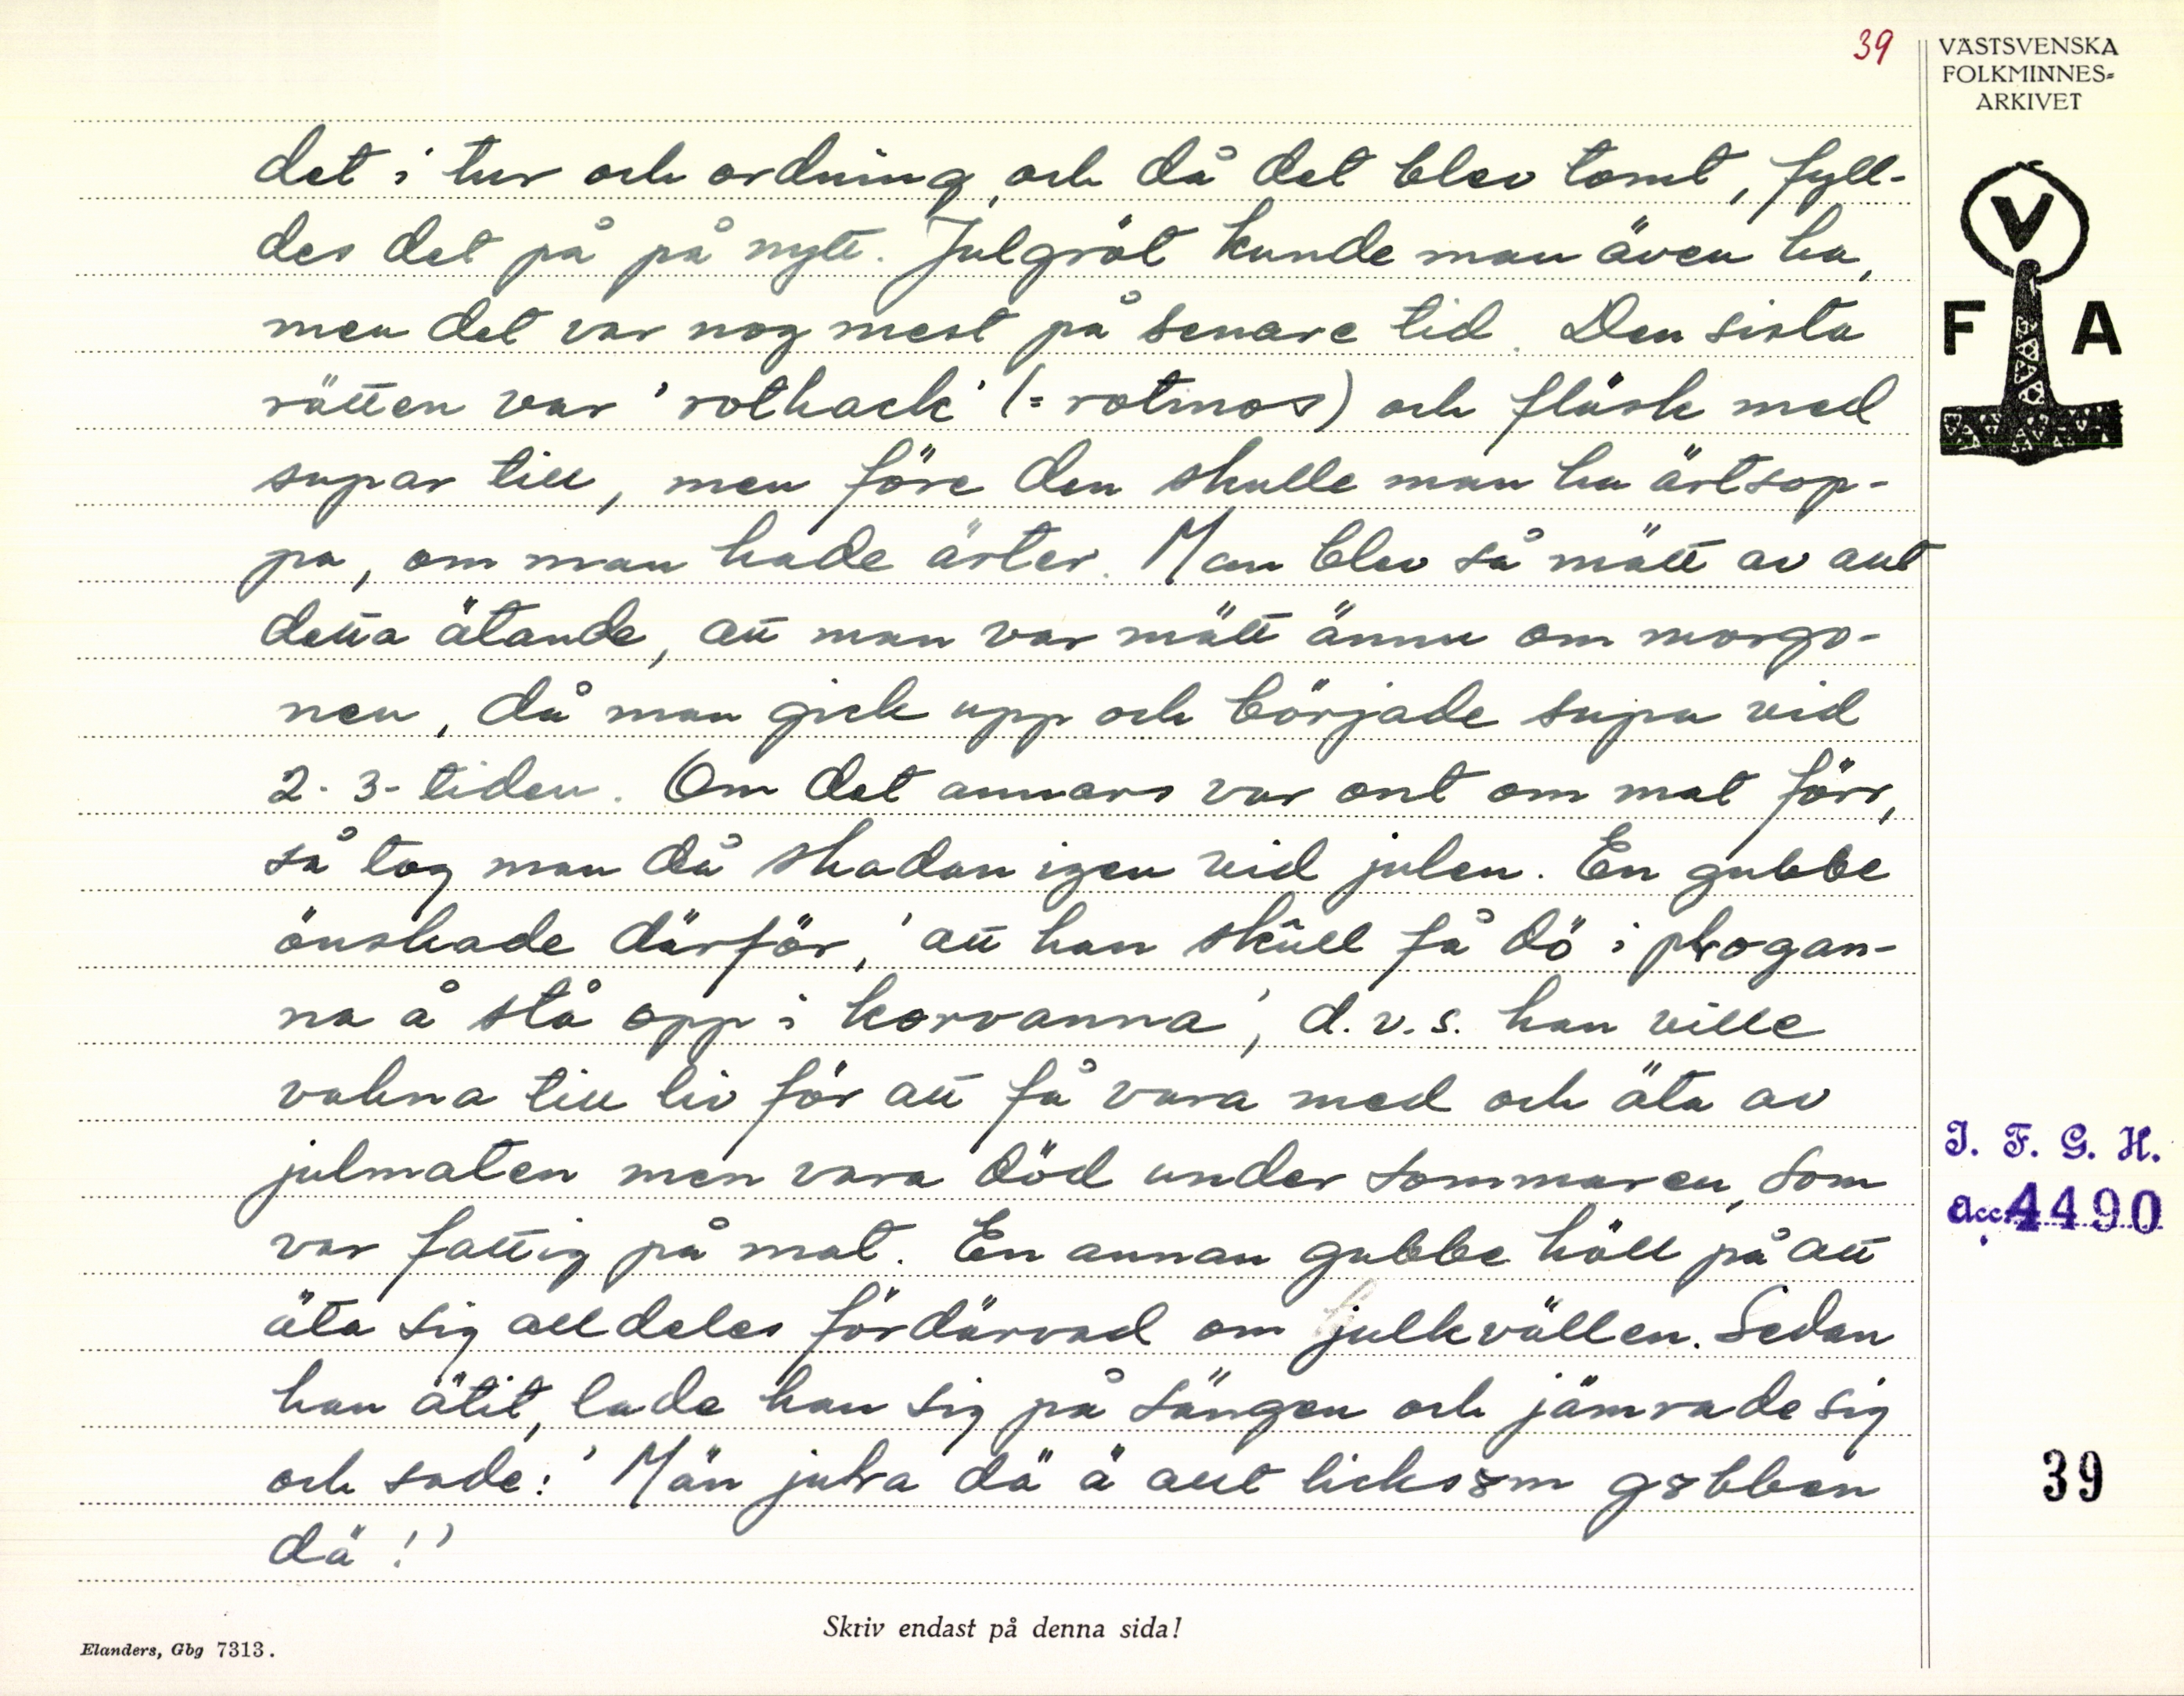 39
VÄSTSVENSKA
FOLKMINNES-
ARKIVET
V
F A
det i tur och ordning, och då det blev tomt, fyll-
des det på på nytt. Julgröt kunde man även ha,
men det var nog mest på senare tid. Den sista
rätten var 'rothack' (= rotmos) och fläsk med
supar till, men före den skulle man ha ärtsop-
pa, om man hade ärter. Man blev så mätt av allt
detta ätande, att man var mätt ännu om morgo-
nen, då man gick upp och började supa vid
2-3-tiden. Om det annars var ont om mat förr,
så tog man då skadan igen vid julen. En gubbe
önskade därför, 'att han skûll få dö i plogan-
na å stå opp i korvanna', d.v.s. han ville
vakna till liv för att få vara med och äta av
julmaten men vara död under sommaren, som
var fattig på mat. En annan gubbe höll på att
äta sig alldeles fördärvad om julkvällen. Sedan
han ätit, lade han sig på sängen och jämrade sig
och sade: 'Män jula dä ä allt licksɜm gɜbben
dä!'
I. F. G. H.
Acc. 4490
39
Skriv endast på denna sida!
Elanders, Gbg 7313.